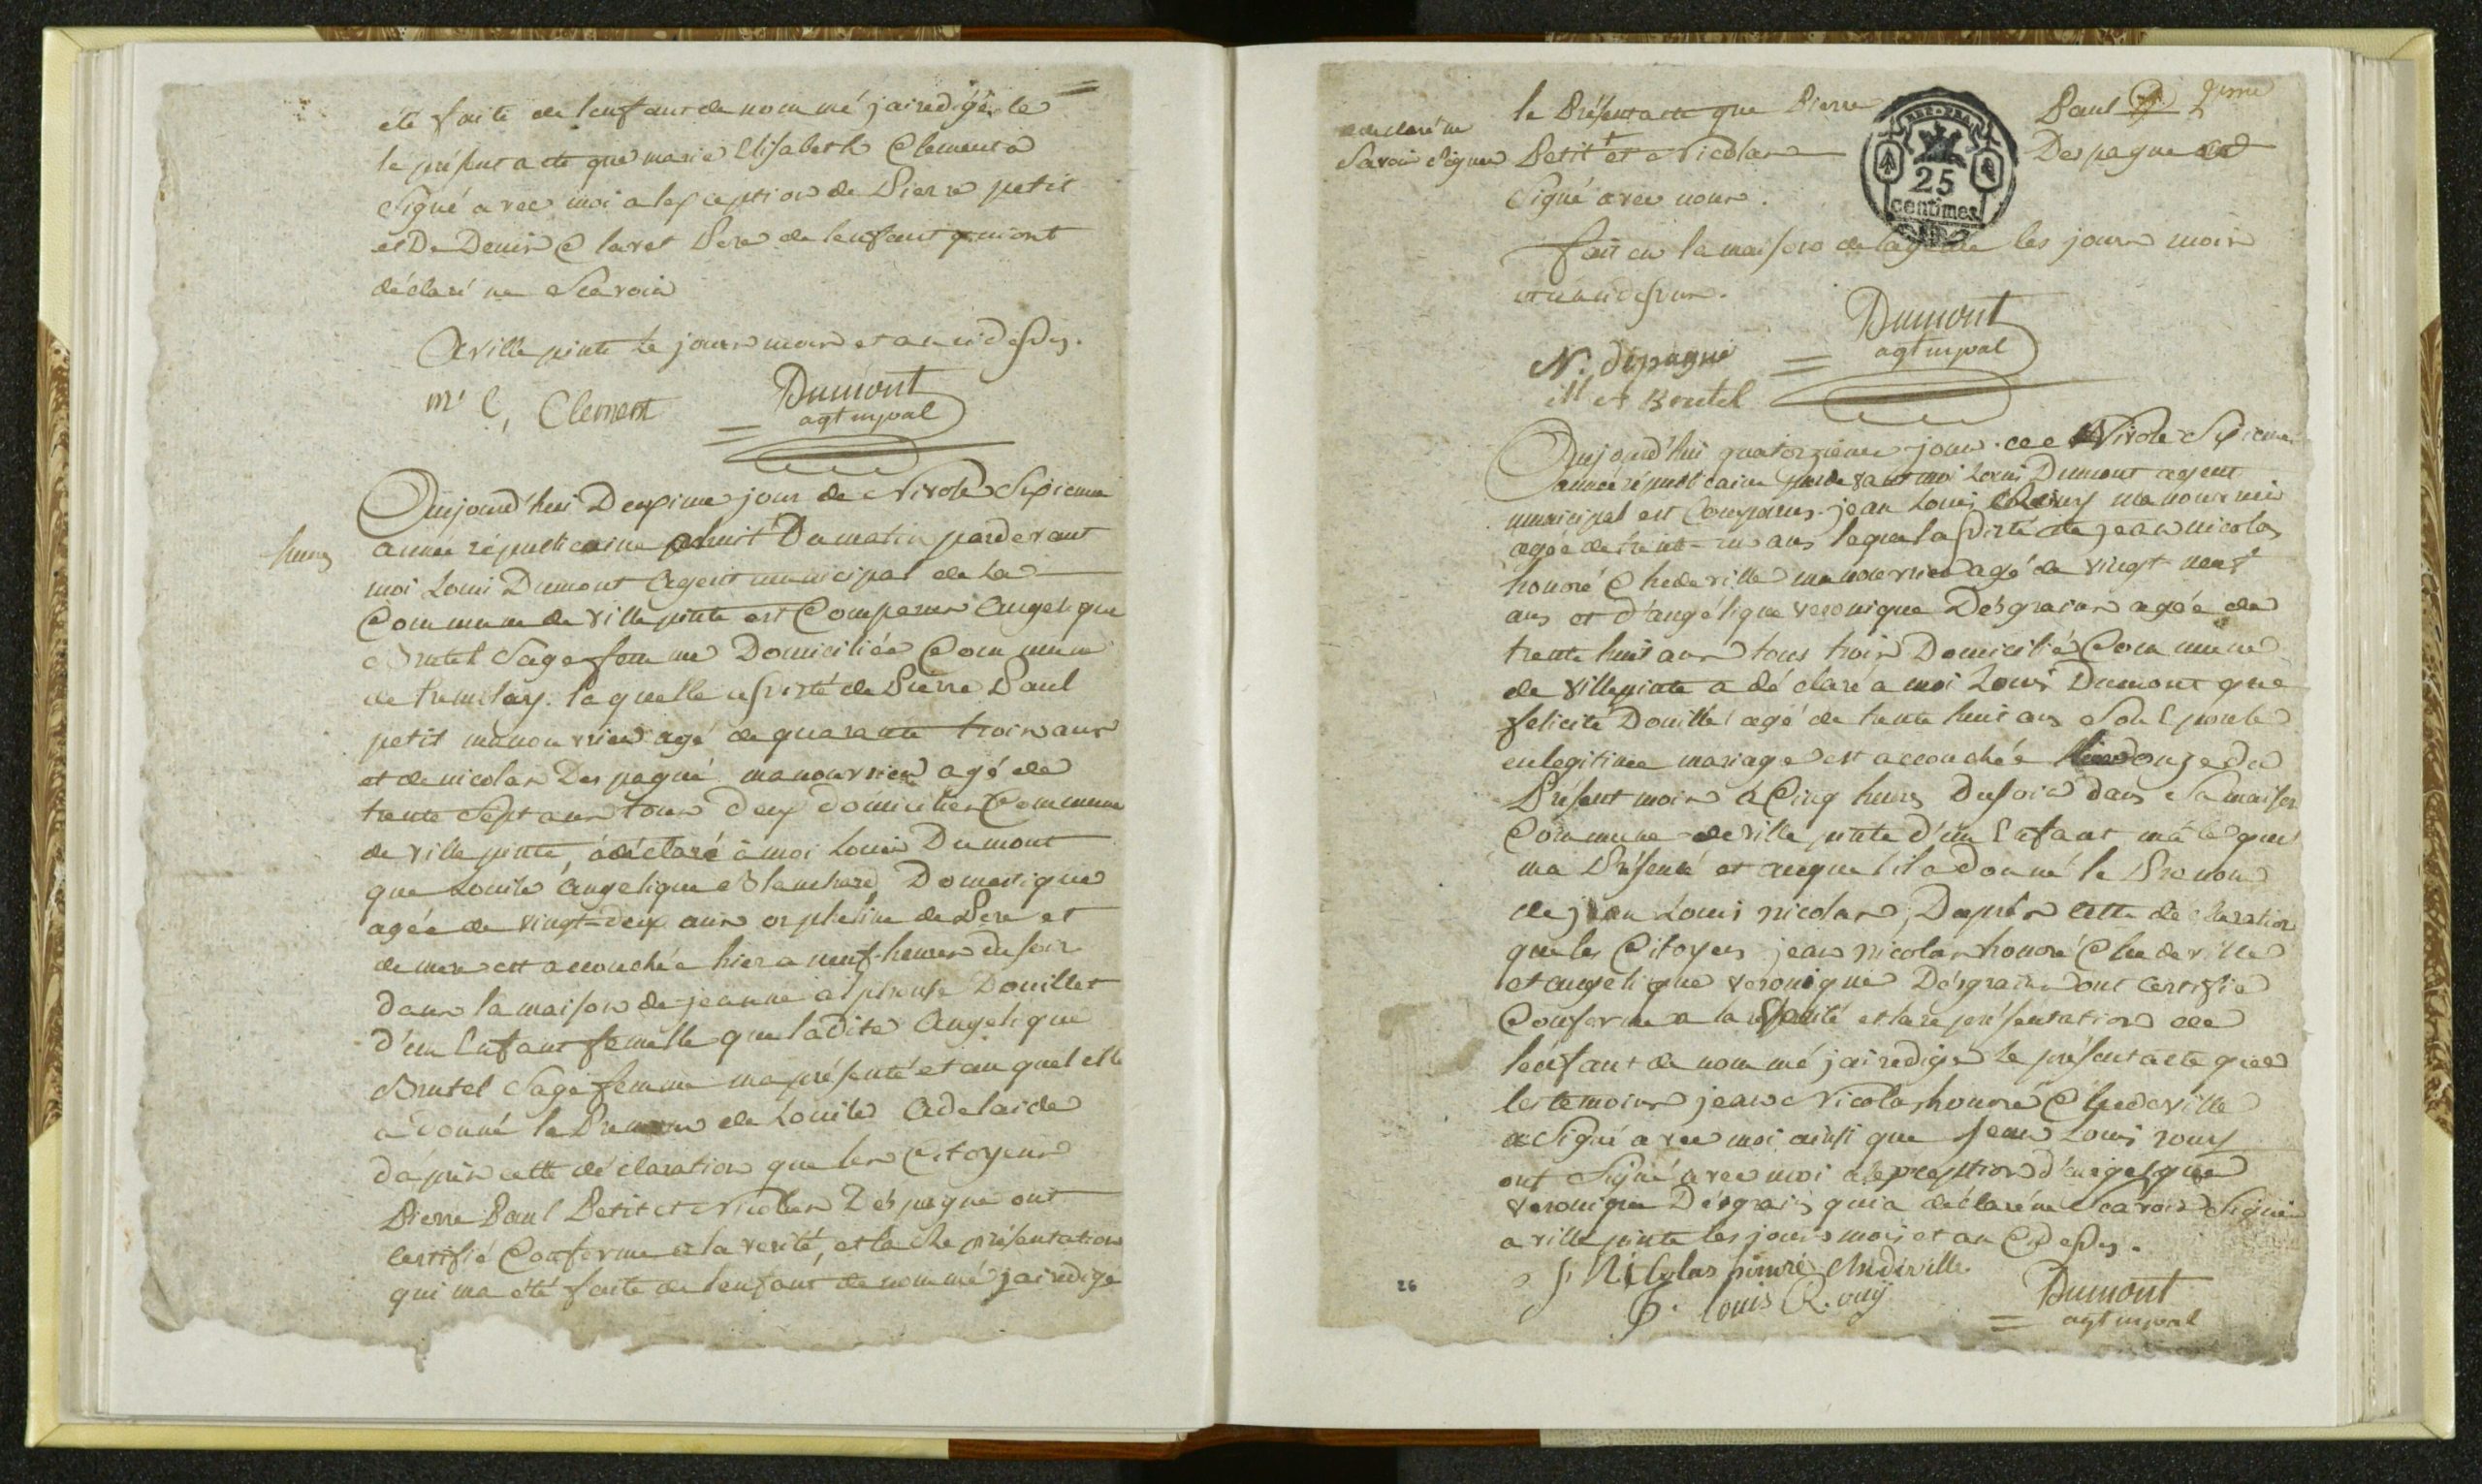 été faite de lenfant denommé jairedigé le
le présent acte que marie Elisabeth Clement a
Signé avec moi a lexception de Pierre petit
et De Denis Claret Pere de lenfant qui ont
déclaré ne Scavoir
A villepinte le jour mois et an cidessus.
m. e, Clement
Dumont
agt mpal
Aujourd'hui Deuxime jour de Nivose Sixieme
heures
année républicaine huit Du matin pardevant
moi Louis Dumont Agent municipal de La
Commune de villepinte est Comparue Angelique
Brutel Sage femme Domiciliée Commune
de tremblay. laquelle assisté de Pierre Paul
petit manouvrier agé de quarante trois ans
et de nicolas Despagne manouvrier agé de
trente Sept ans tous deux domicilier Commune
de villepinte, a déclaré à moi Louis Dumont
que Louise Angelique Blanchard Domestique
agée de vingt-deux ans orpheline de Pere et
de mere est accouchée hier a neuf heures du soir
dans la maison de jeanne alphonse Douillet
d'un Enfant femelle que ladite Angelique
Brutel Sage femme ma présenté et auquel elle
a donné le Prenom de Louise Adelaide
dapres cette déclaration que les Citoyens
Pierre Paul Petit et Nicolas Déspagne ont
certifié Conforme a la verité, et la présentation
qui ma été faite de lenfant denommé jairedigé
le Présent acte que Pierre Paul
a declaré ne
Savoir Signer
Petit et Nicolas Despagne
REP. FRA.
25
centimes
Signé avec nous.
fait en la maison de lagence les jours mois
et an cidessus.
Dumont
agt mpal
N. dépagne
Aujourd'hui quatorzieme jour de Nivose Sixieme
année républicaine pardevant moi Louis Dumont agent
municipal est Comparus jean Louis Rouy manouvrier
agée de trente ans lequel assisté de jean nicolas
honoré Chedeville manouvrier agé de vingt neuf
ans et d'angélique veronique Désgrains agée de
trente huit ans tous trois Domicilié Commune
de villepinte a déclaré a moi Louis Dumont que
felicité Douillet agé de trente huit ans Son Epouse
en legitime mariage est accouchée douze du
Présent mois à Cinq heures Dusoir dans Sa maison
Commune de villepinte d'un Enfant mâle que
ma Présenté et auquel il a donné le Prenom
de jean Louis nicolas, Daprès cette declaration
que les Citoyens jean nicolas honoré Chedeville
et angelique veronique Désgrains ont certifié
Conforme a la vérité et la représentation de
lenfant denommé jairedigé le présent acte que
les témoins jean Nicolas honoré Chedeville
a Signé avec moi ainsi que jean Louis rouy
ont Signé avec moi a lexception d'angelique
veronique Désgrais qui a déclaré ne Scavoir Signer
a villepinte les jours mois et an Cidessus.
j. Nicolas honoré chedeville
j. louis Rouy
Dumont
agt mpal
26